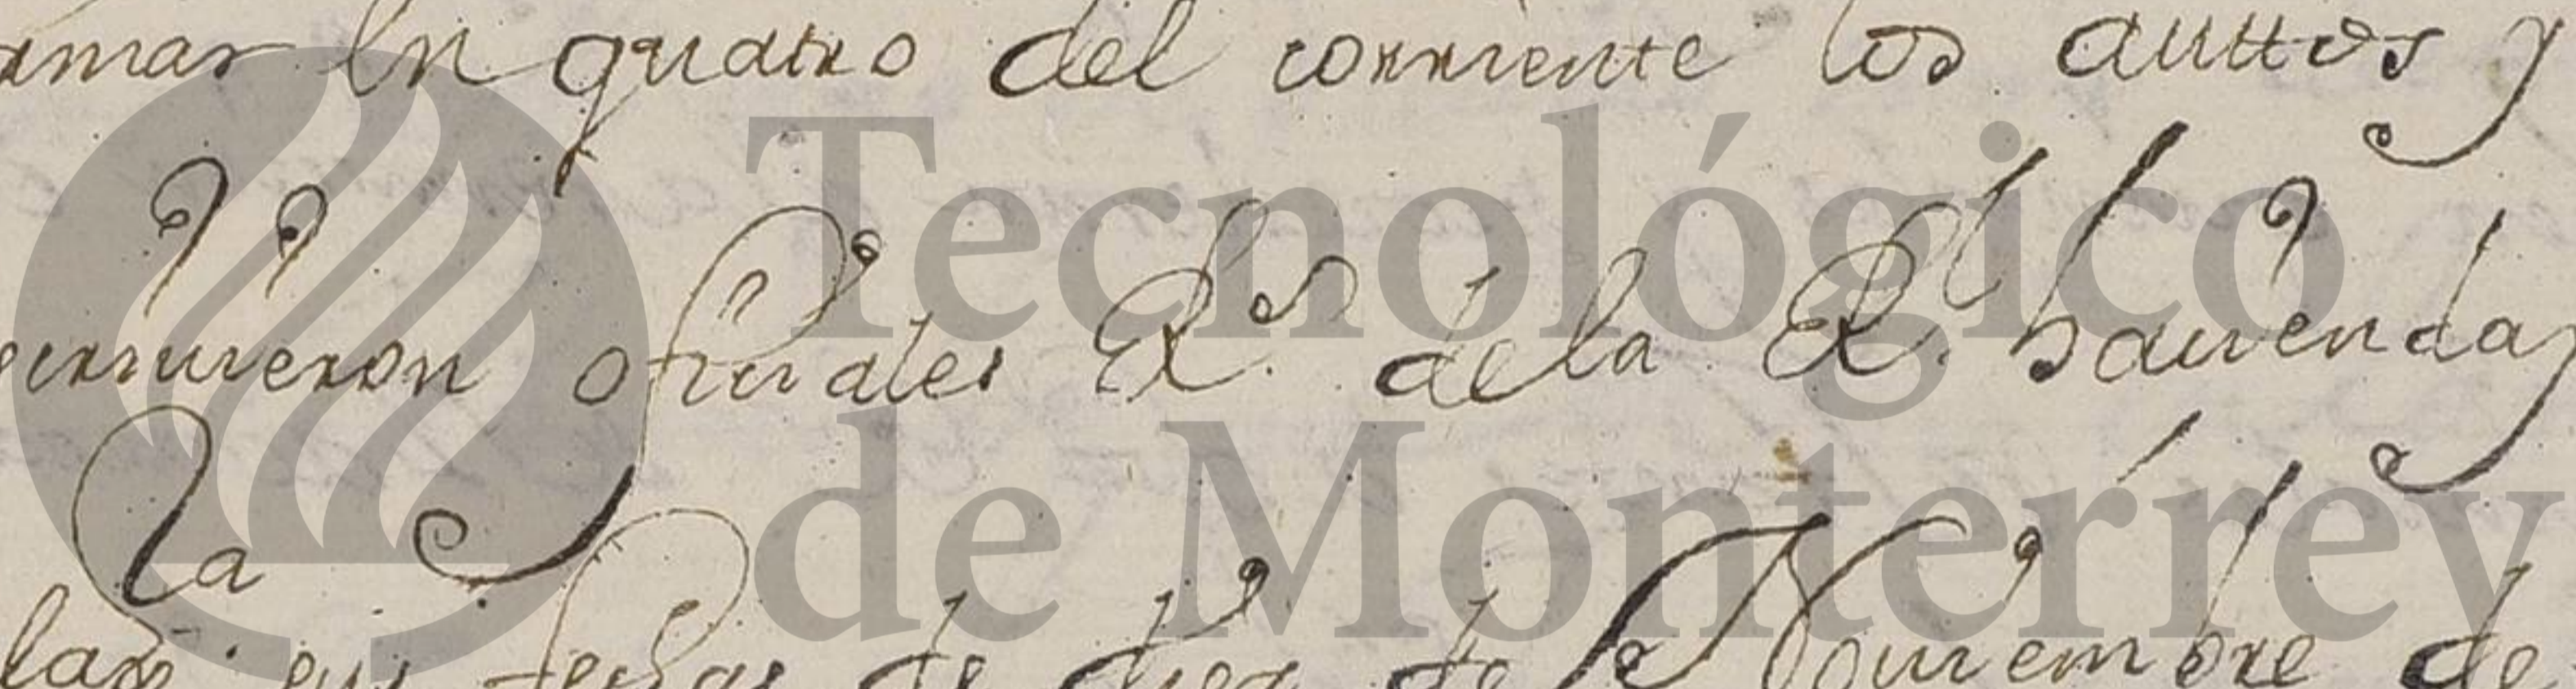 amar En quatro del corriente los auttos y
oficiales Rs de la Rl hacienda
la
en fecha de diez de Nouiembre de
Tecnológico
de Monterrey